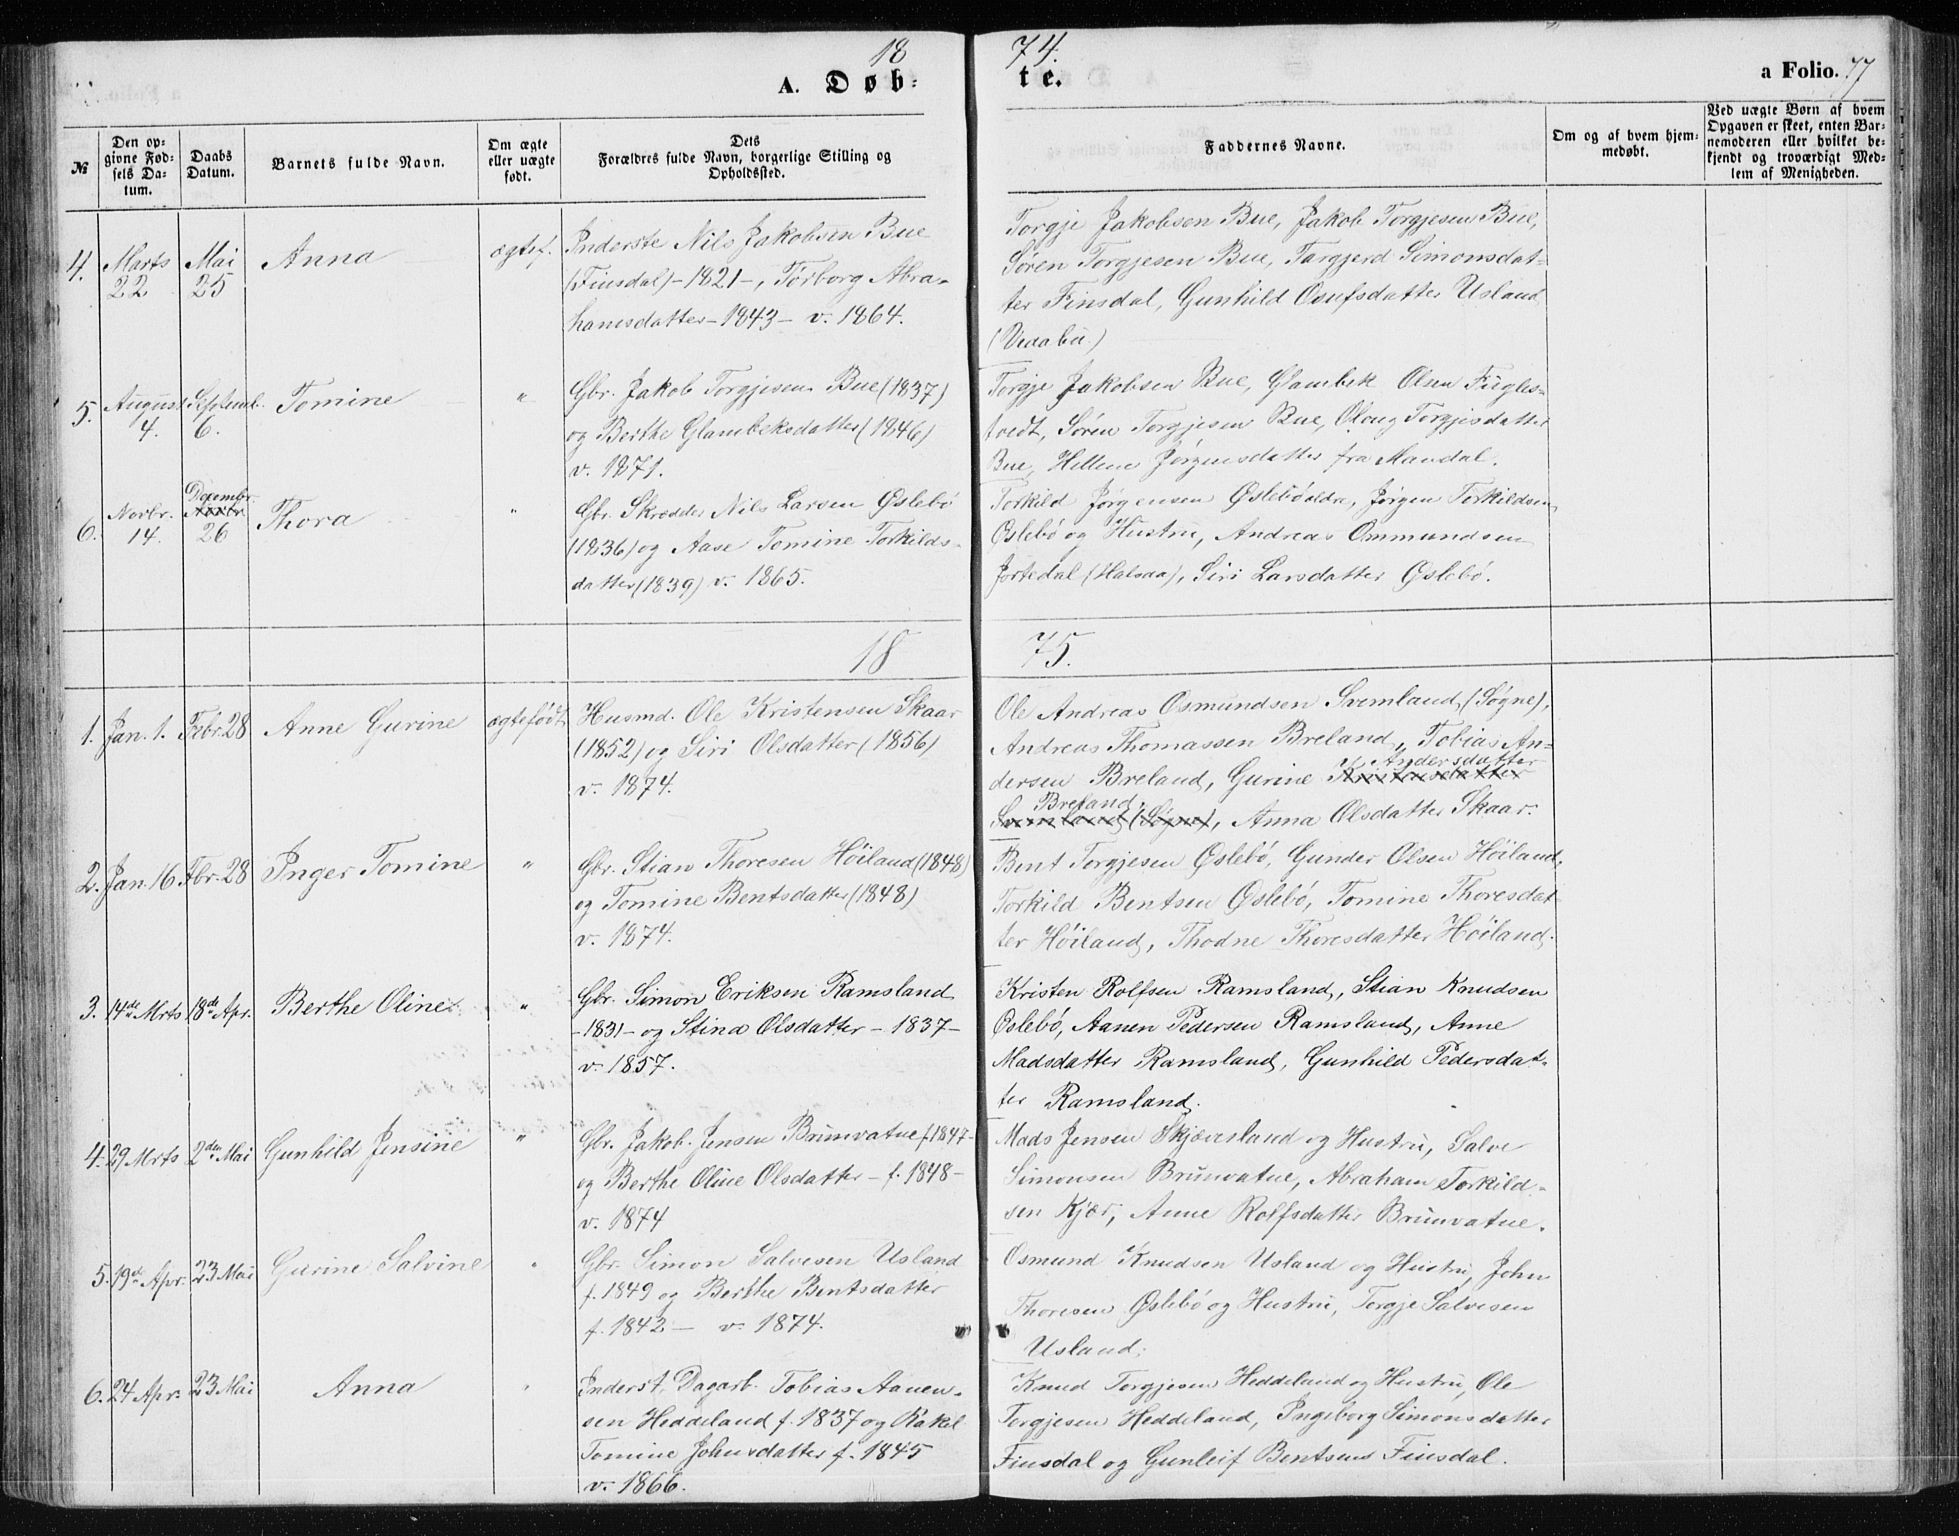 18 74.
A. Døb- te. a Folio. 77
№
Den op-
givne Fød-
sels Da-
tum.
Daabs
Datum.
Barnets fulde Navn.
Om ægte
eller uægte
født.
Dets
Forældres fulde Navn, borgerlige Stilling og
Opholdssted.
Faddernes Navne.
Om og af hvem hjem-
medøbt.
Ved uægte Børn af hvem
Opgaven er skeet, enten Bar-
nemoderen eller hvilket be-
kjendt og troværdigt Med-
lem af Menigheden.
4. Marts
22
Mai
25
Anna
ægtef.
Inderste Nils Jakobsen Bue
(Finsdal) - 1821 -, Torborg Abra-
hamsdatter - 1843 - v. 1864.
Torgje Jakobsen Bue, Jakob Torgjesen Bue,
Søren Torgjesen Bue, Targjerd Simonsdat-
ter Finsdal, Gunhild Osufsdatter Usland
(Vraabu)
5. August
4.
Septemb.
6.
Tomine
"
Gbr. Jakob Torgjesen Bue (1837)
og Berthe Glambeksdatter (1846)
v. 1871.
Torgje Jakobsen Bue, Glambek Olsen Fugles-
tvedt, Søren Torgjesen Bue, Oloug Torgjesdatter
Bue, Hellene Jørgensdatter fra Mandal.
6. Novbr.
14.
Decembr.
Novbr.
26
Thora
"
Gbr. Skrædder Nils Larsen Øslebö
(1836) og Aase Tomine Torkilds-
datter (1839) v. 1865.
Torkild Jørgensen Øslebö ældre, Jörgen Torkildsen
Øslebö og Hustru, Andreas Ommundsen
Jortedal (Halsaa), Siri Larsdatter Øslebö.
18 75.
1. Jan. 1. Febr. 28
Anne Gurine
ægtefödt
Husmd. Ole Kristensen Skaar
(1852) og Siri Olsdatter (1856)
v. 1874.
Ole Andreas Osmundsen Svemland (Søgne),
Andreas Thomassen Breland, Tobias An-
dersen Breland, Gurine Kristensdatter Andersdatter
Svemland (Søgne) Breland, Anna Olsdatter Skaar.
2. Jan. 16 Fbr. 28
Inger Tomine
"
Gbr. Stian Thoresen Höiland (1848)
og Tomine Bentsdatter (1848)
v. 1874.
Bent Torgjesen Øslebö, Gunder Olsen Höiland,
Torkild Bentsen Øslebö, Tomine Thoresdat-
ter Höiland, Thodne Thoresdatter Höiland.
3. 14de Mrts 18de Apr.
Berthe Oline
"
Gbr. Simon Eriksen Ramsland
- 1831 - og Stina Olsdatter - 1837 -
v. 1857.
Kristen Rolfsen Ramsland, Stian Knudsen
Øslebö, Aanen Pedersen Ramsland, Anne
Madsdatter Ramsland, Gunhild Pedersdat-
ter Ramsland.
4. 29 Mrts 2den Mai
Gunhild Jensine
"
Gbr. Jakob Jensen Brunvatne f. 1847 -
og Berthe Oline Olsdatter - f. 1848 -
v. 1874
Mads Jensen Skjævesland og Hustru, Salve
Simonsen Brunvatne, Abraham Torkild-
sen Kjær, Anne Rolfsdatter Brunvatne.
5. 19de Apr. 23 Mai
Gurine Salvine
"
Gbr. Simon Salvesen Usland
f. 1849 og Berthe Bentsdatter
f. 1842 - v. 1874.
Osmund Knudsen Usland og Hustru, John
Thoresen Øslebö og Hustru, Torgje Salvesen
Usland.
6. 24 Apr. 23 Mai
Anna
"
Inderst, Dagarb. Tobias Aanen-
sen Heddeland f. 1837 og Rakel
Tomine Johnsdatter f. 1845
v. 1866.
Knud Torgjesen Heddeland og Hustru, Ole
Torgjesen Heddeland, Ingeborg Simonsdatter
Finsdal og Gunleif Bentsen Finsdal.